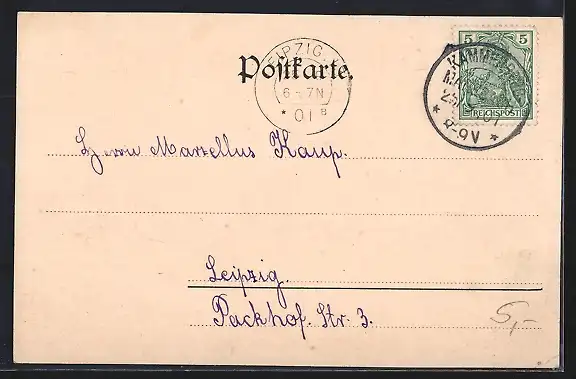 5 5
REICHSPOST
8-9V
LEIPZIG
6-7N
* 01 B
Postkarte.
Herrn Marzellus Kaup.
Leipzig
Packhof. Str. 3.
5,-